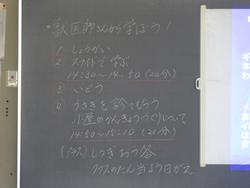 ・獣医師さんから学ぼう！
1 しょうかい
2 スライドで学ぶ
14:30〜14:50 (20分)
3 いどう
4 うさぎを診てもらう
小屋のかんきょうづくりについて
14:50〜15:10 (20分)
(プラス) しつぎおう答
クラスのたん当より日がえ